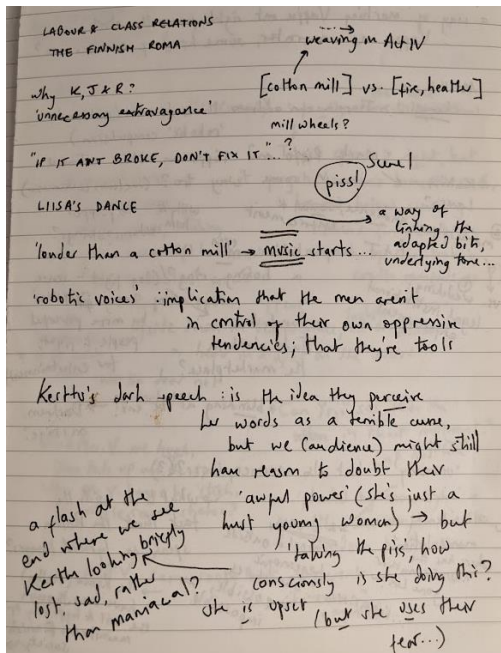 LABOUR & CLASS RELATIONS
THE FINNISH ROMA
weaving in Act IV
Why K, J & R?
'unnecessary extravagance'
[cotton mill] vs. [fire, heather]
mill wheels?
"IF IT AINT BROKE, DON'T FIX IT"...?
piss!
LIISA'S DANCE
a way of
linking the
adapted bits,
underlying tone...
'louder than a cotton mill' → music starts...
'robotic voices' : implication that the men aren't
in control of their own oppressive
tendencies; that they're tools
Kerttu's dark speech : is the idea they perceive
her words as a terrible curse,
but we (audience) might still
have reason to doubt their
'awful power' (she's just a
hurt young woman) → but
'taking the piss', how
consciously is she doing this?
she is upset (but she uses their
fear...)
a flash at the
end where we see
Kerttu looking briefly
lost, sad, rather
than maniacal?